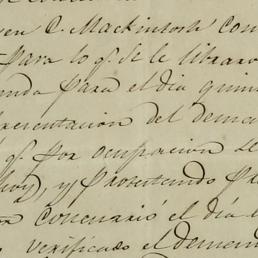 en C. Mackintosh con
para lo q. se le librar
nda para el dia quin
resentacion del dema
q. por ocupacion de
hoy), y protestando pa
concurrió el dia
verificado el demand